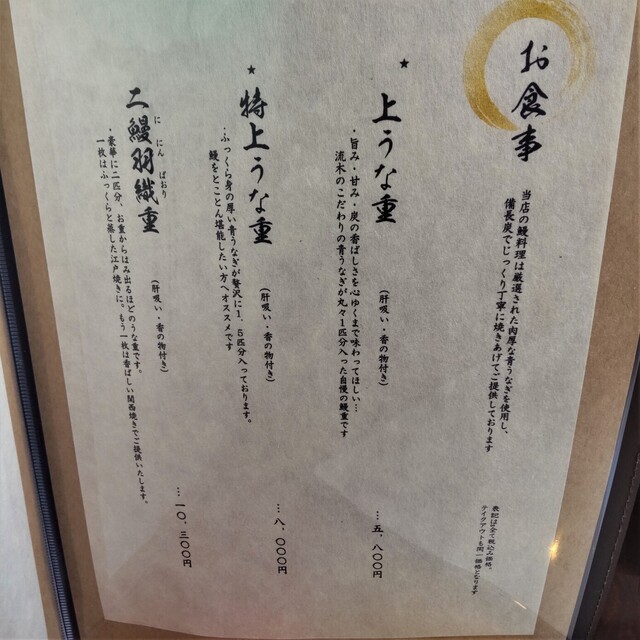 お食事
当店の鰻料理は厳選された肉厚な青うなぎを使用し、
備長炭でじっくり丁寧に焼きあげてご提供しております
表記は全て税込み価格、
テイクアウトも同一価格となります
★
上うな重
(肝吸い・香の物付き)
・旨み・甘み・炭の香ばしさを心ゆくまで味わってほしい…
流木のこだわりの青うなぎが丸々1匹分入った自慢の鰻重です
…五、八〇〇円
★
特上うな重
(肝吸い・香の物付き)
・ふっくら身の厚い青うなぎが贅沢に1.5匹分入っております。
鰻をとことん堪能したい方へオススメです
…八、〇〇〇円
二鰻羽織重
に にん ばおり
(肝吸い・香の物付き)
・豪華に二匹分、お重からはみ出るほどのうな重です。
一枚はふっくらと蒸した江戸焼きに。もう一枚は香ばしい関西焼きでご提供いたします。
…一〇、三〇〇円